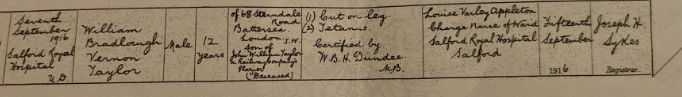 Seventh
September
1916
Salford Royal
Hospital
U.D.
William
Bradlaugh
Vernon
Taylor
Male
12
years
of 68 Sterndale
Road
Battersea
London S.W.
son of
John William Taylor
a Railway Company's
(Deceased)
(1) Cut on leg.
(2) Tetanus.
Certified by
W. B. H. Dundee.
M.B.
Louise Varley Appleton
Charge Nurse of Ward
Salford Royal Hospital
Salford
Fifteenth
September
1916
Joseph H.
Sykes
Registrar.